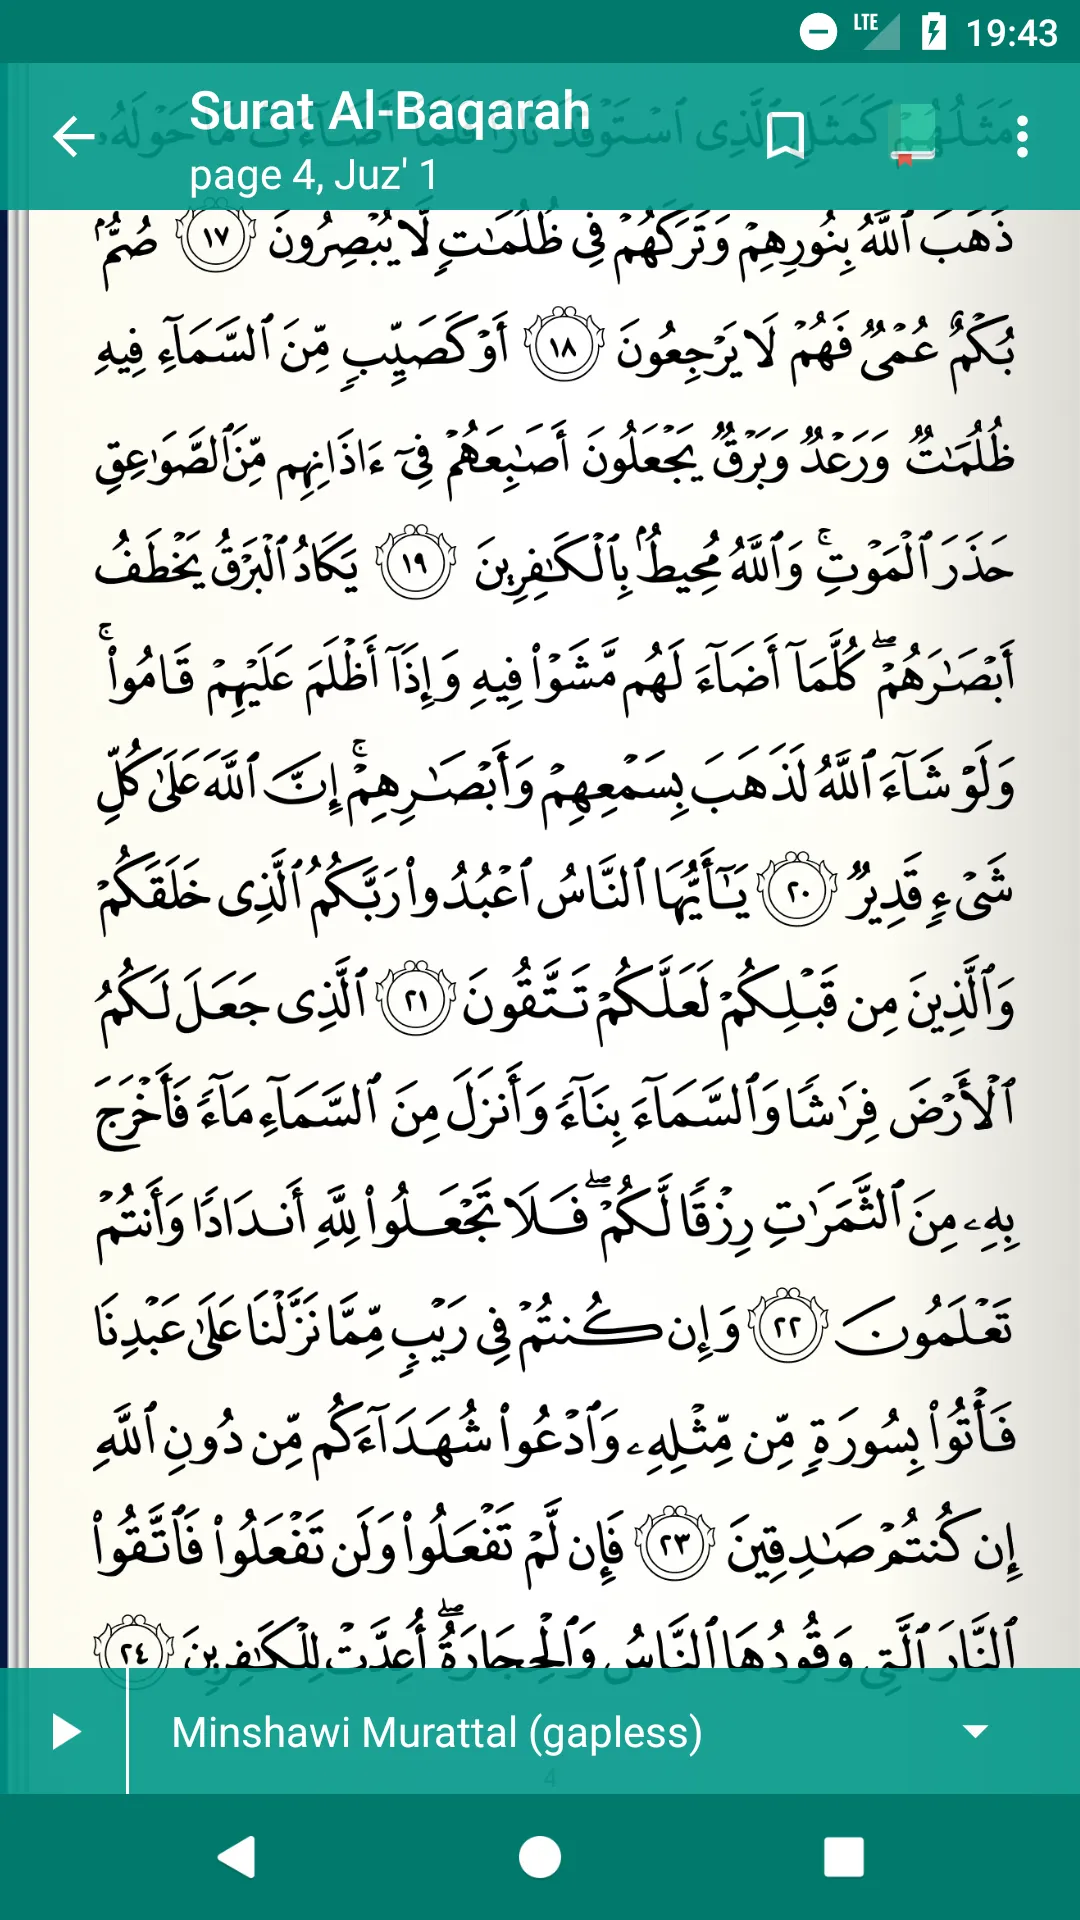 LTE 19:43
Surat Al-Baqarah
page 4, Juz' 1
مَثَلُهُمْ كَمَثَلِ ٱلَّذِى ٱسْتَوْقَدَ نَارًا فَلَمَّآ أَضَآءَتْ مَا حَوْلَهُۥ
ذَهَبَ ٱللَّهُ بِنُورِهِمْ وَتَرَكَهُمْ فِى ظُلُمَـٰتٍ لَّا يُبْصِرُونَ ١٧ صُمٌّۢ
بُكْمٌ عُمْىٌ فَهُمْ لَا يَرْجِعُونَ ١٨ أَوْ كَصَيِّبٍ مِّنَ ٱلسَّمَآءِ فِيهِ
ظُلُمَـٰتٌ وَرَعْدٌ وَبَرْقٌ يَجْعَلُونَ أَصَـٰبِعَهُمْ فِىٓ ءَاذَانِهِم مِّنَ ٱلصَّوَٰعِقِ
حَذَرَ ٱلْمَوْتِ ۚ وَٱللَّهُ مُحِيطٌۢ بِٱلْكَـٰفِرِينَ ١٩ يَكَادُ ٱلْبَرْقُ يَخْطَفُ
أَبْصَـٰرَهُمْ ۖ كُلَّمَآ أَضَآءَ لَهُم مَّشَوْا۟ فِيهِ وَإِذَآ أَظْلَمَ عَلَيْهِمْ قَامُوا۟ ۚ
وَلَوْ شَآءَ ٱللَّهُ لَذَهَبَ بِسَمْعِهِمْ وَأَبْصَـٰرِهِمْ ۚ إِنَّ ٱللَّهَ عَلَىٰ كُلِّ
شَىْءٍ قَدِيرٌ ٢٠ يَـٰٓأَيُّهَا ٱلنَّاسُ ٱعْبُدُوا۟ رَبَّكُمُ ٱلَّذِى خَلَقَكُمْ
وَٱلَّذِينَ مِن قَبْلِكُمْ لَعَلَّكُمْ تَتَّقُونَ ٢١ ٱلَّذِى جَعَلَ لَكُمُ
ٱلْأَرْضَ فِرَٰشًا وَٱلسَّمَآءَ بِنَآءً وَأَنزَلَ مِنَ ٱلسَّمَآءِ مَآءً فَأَخْرَجَ
بِهِۦ مِنَ ٱلثَّمَرَٰتِ رِزْقًا لَّكُمْ ۖ فَلَا تَجْعَلُوا۟ لِلَّهِ أَندَادًا وَأَنتُمْ
تَعْلَمُونَ ٢٢ وَإِن كُنتُمْ فِى رَيْبٍ مِّمَّا نَزَّلْنَا عَلَىٰ عَبْدِنَا
فَأْتُوا۟ بِسُورَةٍ مِّن مِّثْلِهِۦ وَٱدْعُوا۟ شُهَدَآءَكُم مِّن دُونِ ٱللَّهِ
إِن كُنتُمْ صَـٰدِقِينَ ٢٣ فَإِن لَّمْ تَفْعَلُوا۟ وَلَن تَفْعَلُوا۟ فَٱتَّقُوا۟
ٱلنَّارَ ٱلَّتِى وَقُودُهَا ٱلنَّاسُ وَٱلْحِجَارَةُ ۖ أُعِدَّتْ لِلْكَـٰفِرِينَ ٢٤
Minshawi Murattal (gapless)
4